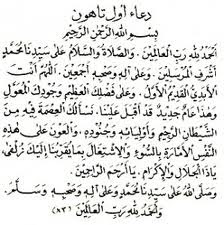 دعاء أول تاهون
بسم الله الرحمن الرحيم
الحمد لله رب العالمين. والصلاة والسلام على سيدنا محمد
أشرف المرسلين. وعلى آله وصحبه أجمعين. اللهم أنت
الأبدي القديم الأول. وعلى فضلك العظيم وجودك المعول
وهذا عام جديد قد أقبل علينا. نسألك العصمة فيه من
الشيطان الرجيم وأوليائه وجنوده. والعون على هذه
النفس الأمارة بالسوء والاشتغال بما يقربنا إليك زلفى
ياذا الجلال والإكرام. يا أرحم الراحمين.
وصلى الله على سيدنا محمد وعلى آله وصحبه وسلم.
والحمد لله رب العالمين (٨٣)